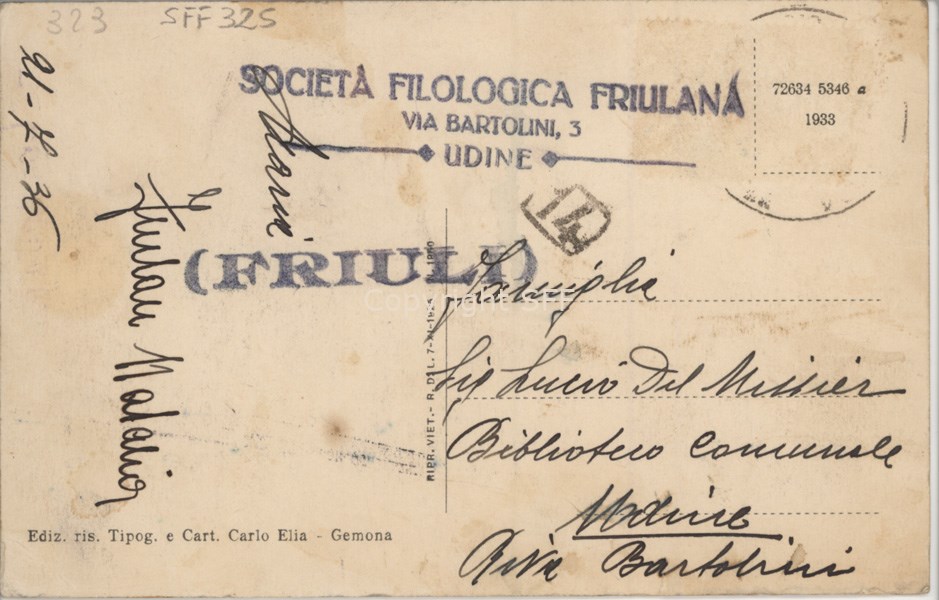 323 SFF 325
SOCIETÀ FILOLOGICA FRIULANA
VIA BARTOLINI, 3
UDINE
72634 5346 a
1933
14
(FRIULI)
21-7-36
Copyright SFF
RIPR. VIET. - R. D. L. 7-XI-192
Famiglia
Sig Lucio Del Missier
Biblioteca Comunale
Udine
Riva Bartolini
Ediz. ris. Tipog. e Cart. Carlo Elia - Gemona